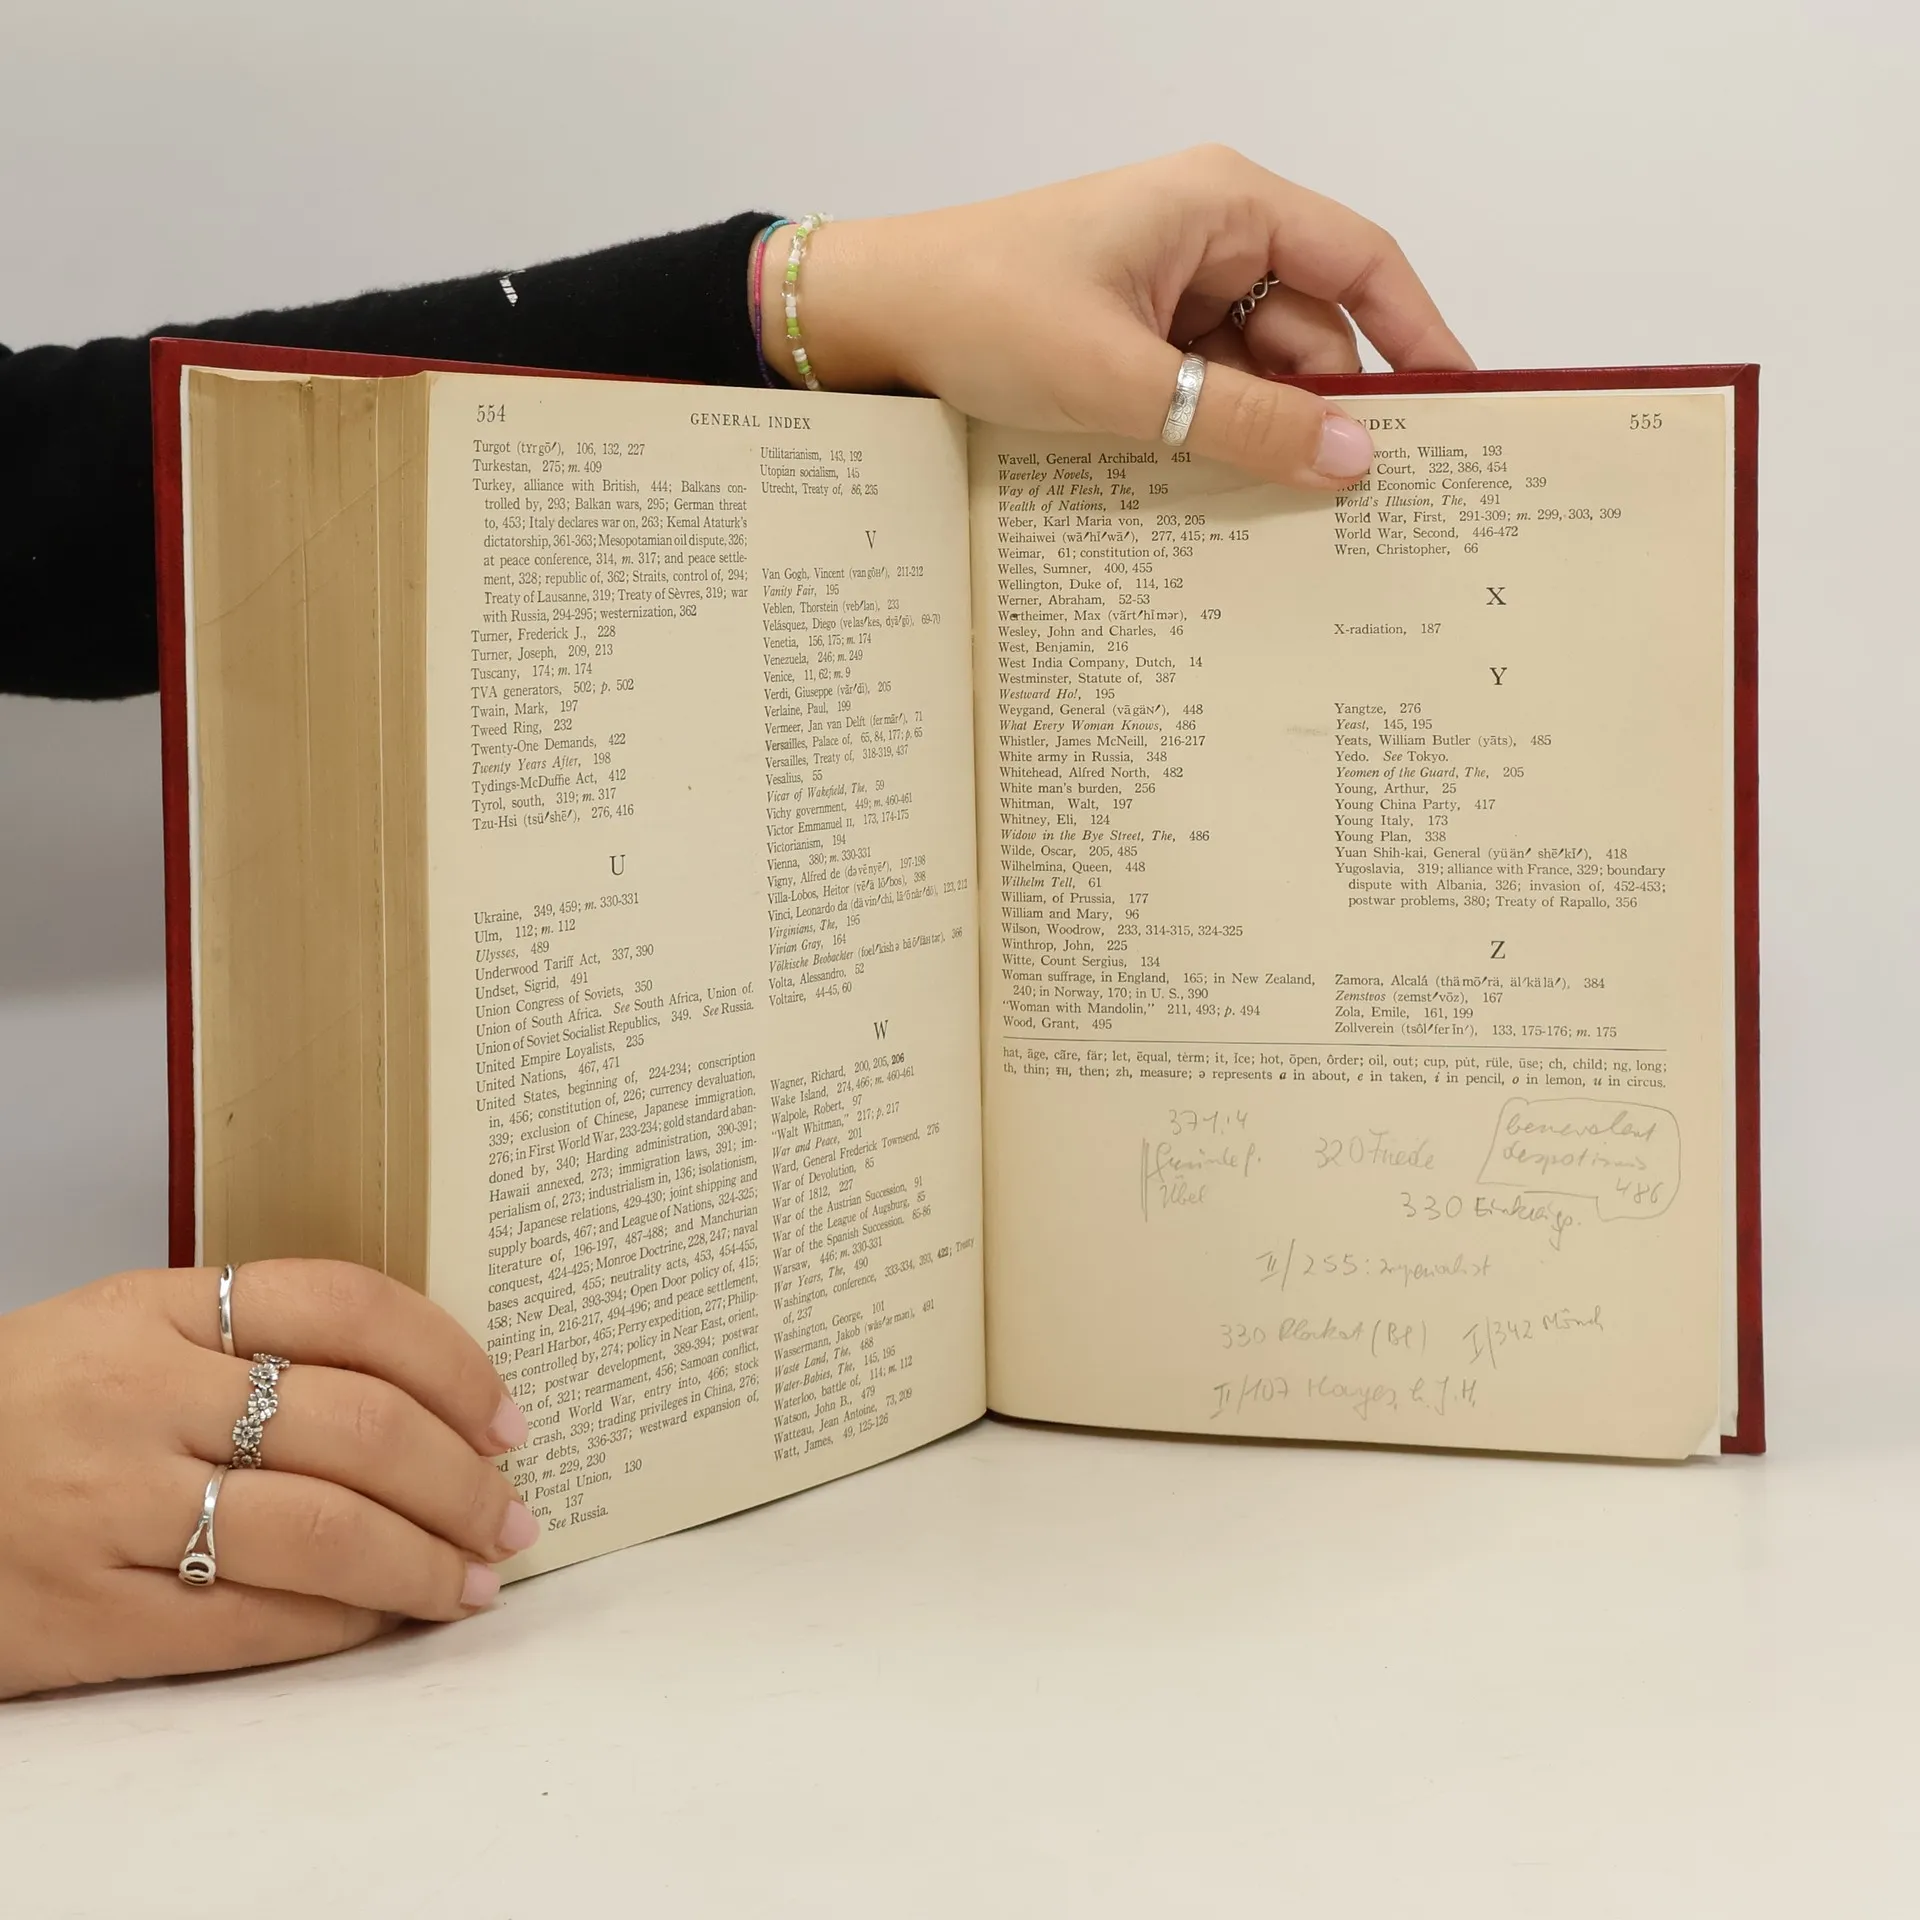 554
GENERAL INDEX
Turgot (tyrgō′), 106, 132, 227
Turkestan, 275; m. 409
Turkey, alliance with British, 444; Balkans con-
trolled by, 293; Balkan wars, 295; German threat
to, 453; Italy declares war on, 263; Kemal Ataturk's
dictatorship, 361-363; Mesopotamian oil dispute, 326;
at peace conference, 314, m. 317; and peace settle-
ment, 328; republic of, 362; Straits, control of, 294;
Treaty of Lausanne, 319; Treaty of Sèvres, 319; war
with Russia, 294-295; westernization, 362
Turner, Frederick J., 228
Turner, Joseph, 209, 213
Tuscany, 174; m. 174
TVA generators, 502; p. 502
Twain, Mark, 197
Tweed Ring, 232
Twenty-One Demands, 422
Twenty Years After, 198
Tydings-McDuffie Act, 412
Tyrol, south, 319; m. 317
Tzu-Hsi (tsü′shē′), 276, 416
U
Ukraine, 349, 459; m. 330-331
Ulm, 112; m. 112
Ulysses, 489
Underwood Tariff Act, 337, 390
Undset, Sigrid, 491
Union Congress of Soviets, 350
Union of South Africa. See South Africa, Union of.
Union of Soviet Socialist Republics, 349. See Russia.
United Empire Loyalists, 235
United Nations, 467, 471
United States, beginning of, 224-234; conscription
in, 456; constitution of, 226; currency devaluation,
339; exclusion of Chinese, Japanese immigration,
276; in First World War, 233-234; gold standard aban-
doned by, 340; Harding administration, 390-391;
Hawaii annexed, 273; immigration laws, 391; im-
perialism of, 273; industrialism in, 136; isolationism,
454; Japanese relations, 429-430; joint shipping and
supply boards, 467; and League of Nations, 324-325;
literature of, 196-197, 487-488; and Manchurian
conquest, 424-425; Monroe Doctrine, 228, 247; naval
bases acquired, 455; neutrality acts, 453, 454-455,
458; New Deal, 393-394; Open Door policy of, 415;
painting in, 216-217, 494-496; and peace settlement,
319; Pearl Harbor, 465; Perry expedition, 277; Philip-
nes controlled by, 274; policy in Near East, orient,
412; postwar development, 389-394; postwar
on of, 321; rearmament, 456; Samoan conflict,
econd World War, entry into, 466; stock
ket crash, 339; trading privileges in China, 276;
d war debts, 336-337; westward expansion of,
230, m. 229, 230
al Postal Union, 130
ion, 137
See Russia.
Utilitarianism, 143, 192
Utopian socialism, 145
Utrecht, Treaty of, 86, 235
V
Van Gogh, Vincent (van gōH′), 211-212
Vanity Fair, 195
Veblen, Thorstein (veb′lən), 233
Velásquez, Diego (velas′kes, dyā′gō), 69-70
Venetia, 156, 175; m. 174
Venezuela, 246; m. 249
Venice, 11, 62; m. 9
Verdi, Giuseppe (vār′di), 205
Verlaine, Paul, 199
Vermeer, Jan van Delft (fermār′), 71
Versailles, Palace of, 65, 84, 177; p. 65
Versailles, Treaty of, 318-319, 437
Vesalius, 55
Vicar of Wakefield, The, 59
Vichy government, 449; m. 460-461
Victor Emmanuel II, 173, 174-175
Victorianism, 194
Vienna, 380; m. 330-331
Vigny, Alfred de (də vē nyē′), 197-198
Villa-Lobos, Heitor (vē′ä lō′bos), 398
Vinci, Leonardo da (dä vin′chi, lā′ō när′dō), 123, 212
Virginians, The, 195
Vivian Gray, 164
Völkische Beobachter 366
Volta, Alessandro, 52
Voltaire, 44-45, 60
W
Wagner, Richard, 200, 205, 206
Wake Island, 274, 466; m. 460-461
Walpole, Robert, 97
"Walt Whitman," 217; p. 217
War and Peace, 201
Ward, General Frederick Townsend, 276
War of Devolution, 85
War of 1812, 227
War of the Austrian Succession, 91
War of the League of Augsburg, 85
War of the Spanish Succession, 85-86
Warsaw, 446; m. 330-331
War Years, The, 490
Washington, conference, 333-334, 393, 422; Treaty
of, 237
Washington, George, 101
Wassermann, Jakob (wäs′ər mən), 491
Waste Land, The, 488
Water-Babies, The, 145, 195
Waterloo, battle of, 114; m. 112
Watson, John B., 479
Watteau, Jean Antoine, 73, 209
Watt, James, 49, 125-126
NDEX
555
Wavell, General Archibald, 451
Waverley Novels, 194
Way of All Flesh, The, 195
Wealth of Nations, 142
Weber, Karl Maria von, 203, 205
Weihaiwei (wā′hī′wā′), 277, 415; m. 415
Weimar, 61; constitution of, 363
Welles, Sumner, 400, 455
Wellington, Duke of, 114, 162
Werner, Abraham, 52-53
Wertheimer, Max (värt′hī mər), 479
Wesley, John and Charles, 46
West, Benjamin, 216
West India Company, Dutch, 14
Westminster, Statute of, 387
Westward Ho!, 195
Weygand, General (vā gäN′), 448
What Every Woman Knows, 486
Whistler, James McNeill, 216-217
White army in Russia, 348
Whitehead, Alfred North, 482
White man's burden, 256
Whitman, Walt, 197
Whitney, Eli, 124
Widow in the Bye Street, The, 486
Wilde, Oscar, 205, 485
Wilhelmina, Queen, 448
Wilhelm Tell, 61
William, of Prussia, 177
William and Mary, 96
Wilson, Woodrow, 233, 314-315, 324-325
Winthrop, John, 225
Witte, Count Sergius, 134
Woman suffrage, in England, 165; in New Zealand,
240; in Norway, 170; in U. S., 390
"Woman with Mandolin," 211, 493; p. 494
Wood, Grant, 495
worth, William, 193
Court, 322, 386, 454
orld Economic Conference, 339
World's Illusion, The, 491
World War, First, 291-309; m. 299, 303, 309
World War, Second, 446-472
Wren, Christopher, 66
X
X-radiation, 187
Y
Yangtze, 276
Yeast, 145, 195
Yeats, William Butler (yāts), 485
Yedo. See Tokyo.
Yeomen of the Guard, The, 205
Young, Arthur, 25
Young China Party, 417
Young Italy, 173
Young Plan, 338
Yuan Shih-kai, General (yü än′ shē′kī′), 418
Yugoslavia, 319; alliance with France, 329; boundary
dispute with Albania, 326; invasion of, 452-453;
postwar problems, 380; Treaty of Rapallo, 356
Z
Zamora, Alcalá (thä mō′rä, äl′kä lä′), 384
Zemstvos (zemst′vōz), 167
Zola, Emile, 161, 199
Zollverein (tsôl′fer īn′), 133, 175-176; m. 175
hat, āge, cãre, fär; let, ēqual, tėrm; it, īce; hot, ōpen, ôrder; oil, out; cup, pu̇t, rüle, ūse; ch, child; ng, long;
th, thin; ᴛʜ, then; zh, measure; ə represents a in about, e in taken, i in pencil, o in lemon, u in circus.
Übel
320 Friede
benevolent
despotism
486
330
II/255: imperialist
330 Blockat (Bl) I/342 Mönch
II/107 Hayes,